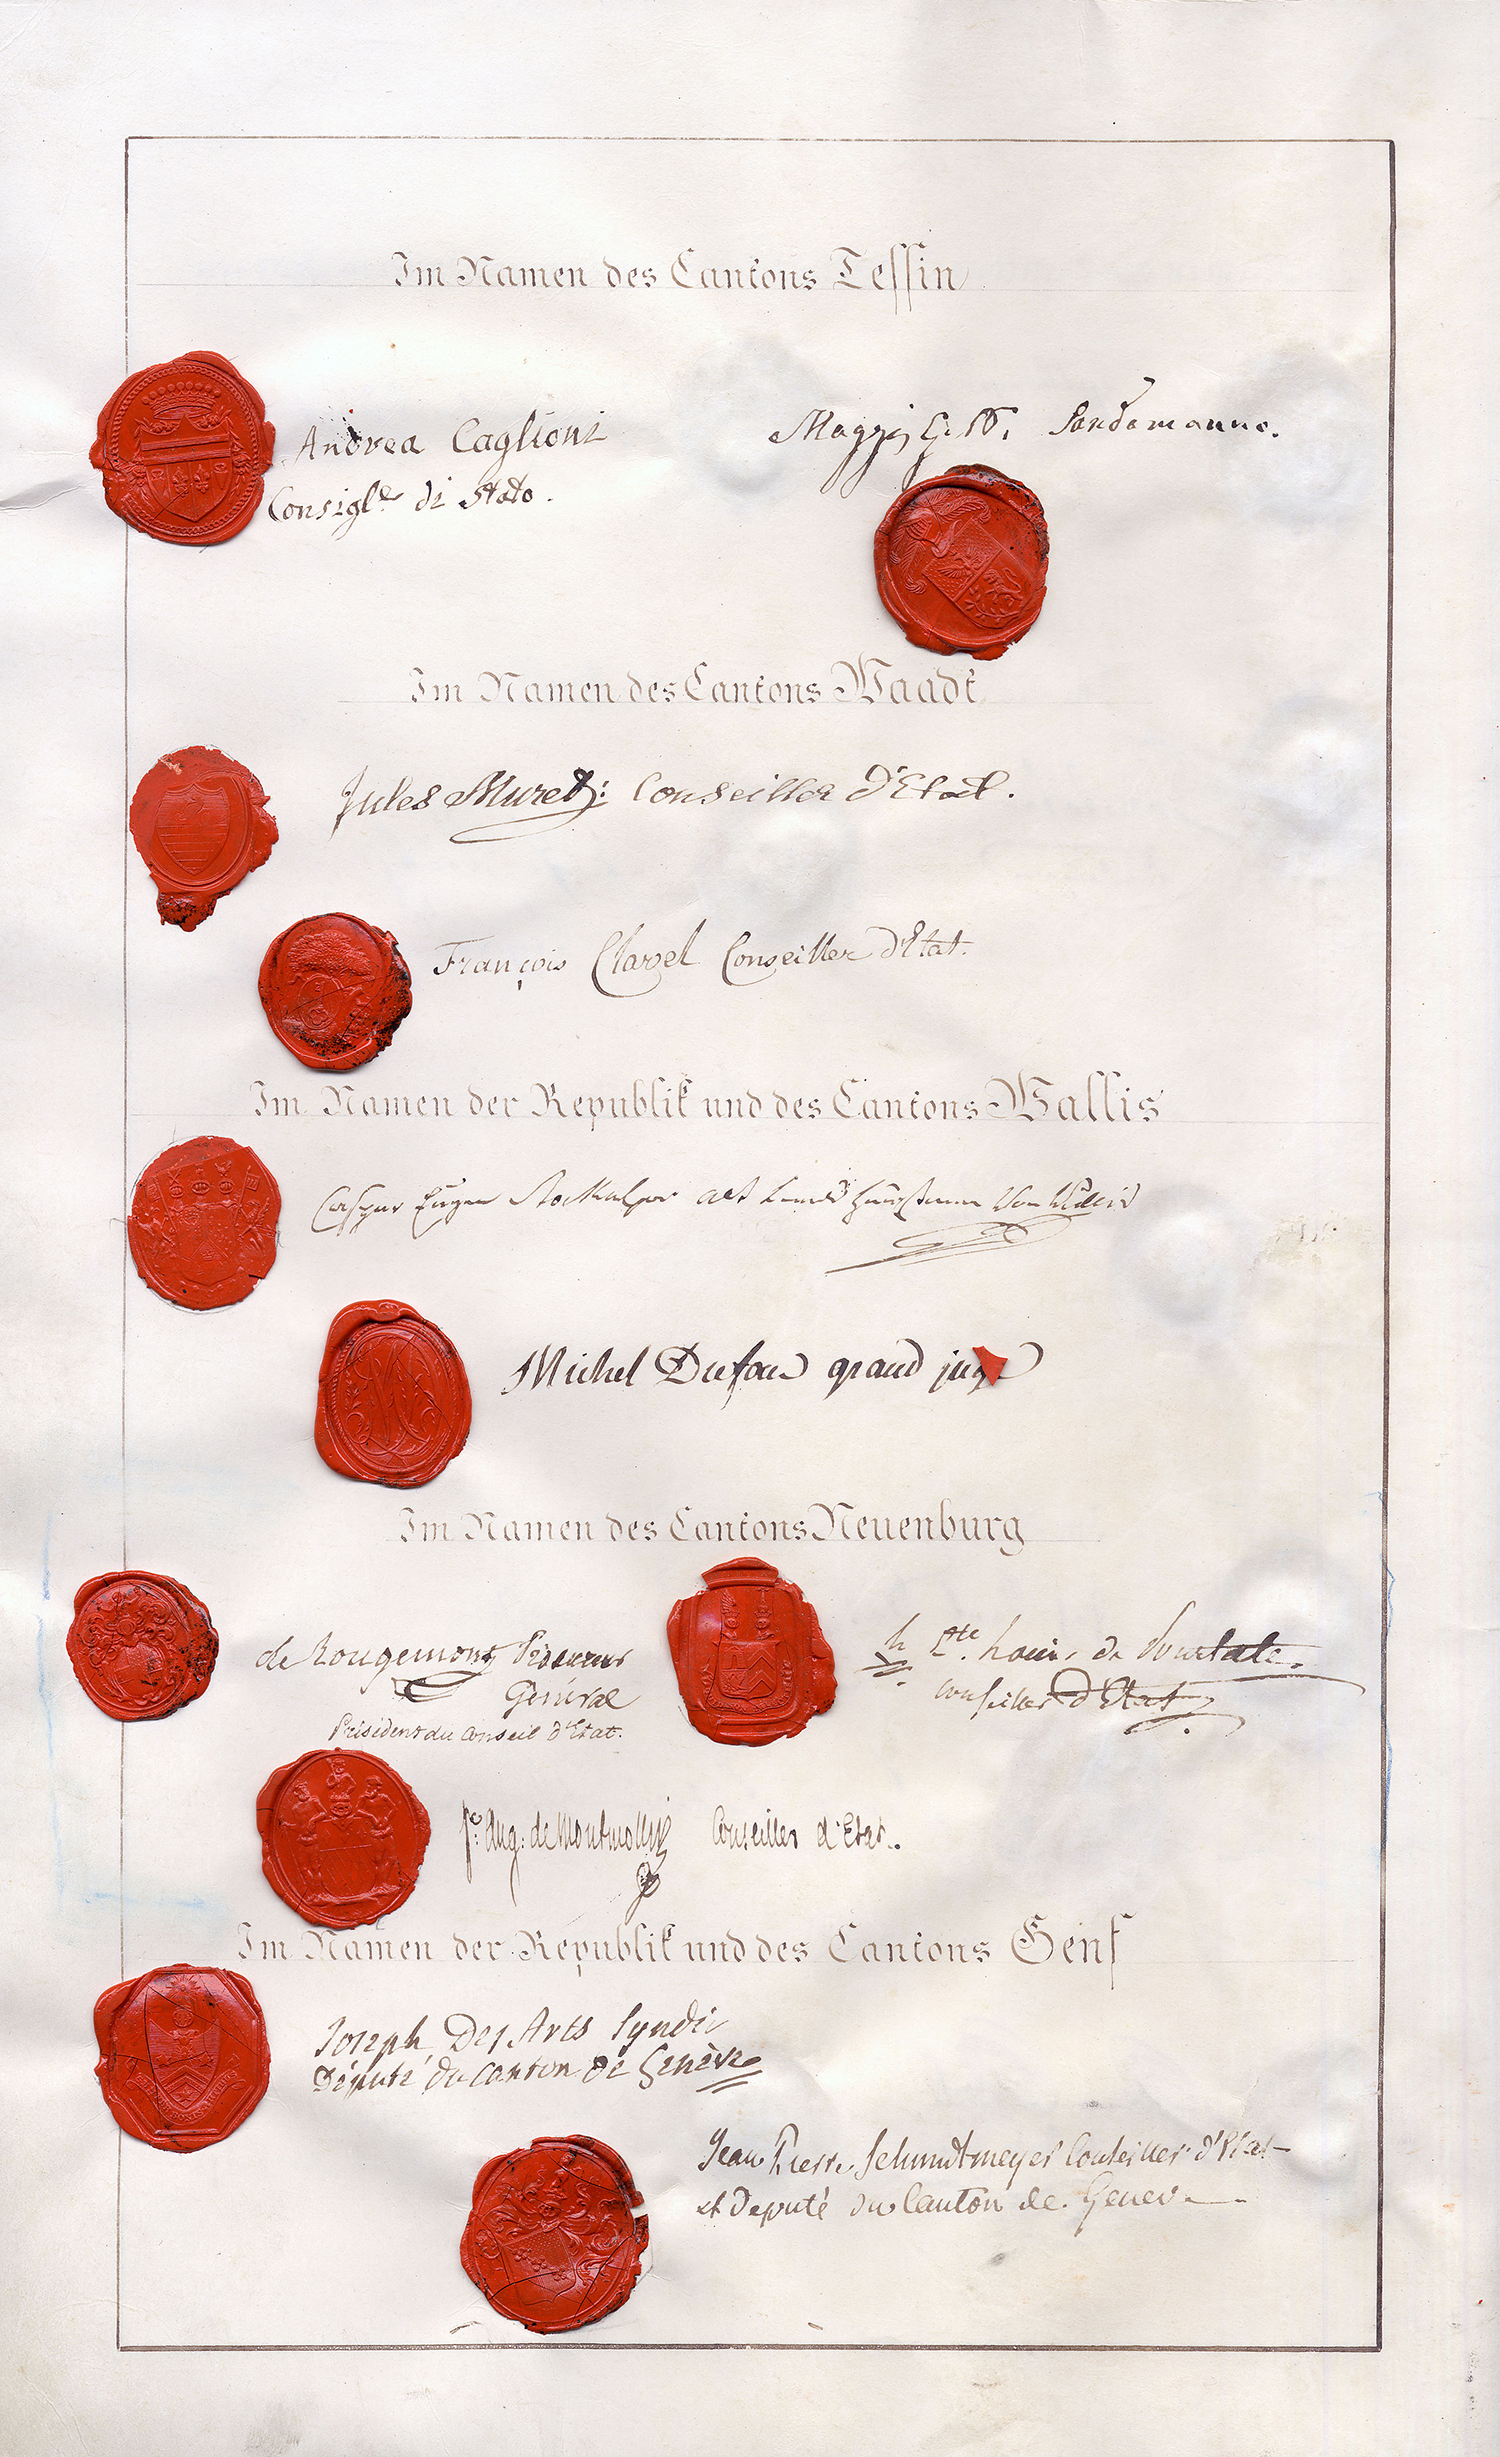 Im Namen des Cantons Tessin
Andrea Caglioni
Consigl.e di Stato.
Maggi G. B. Landamanno.
Im Namen des Cantons Waadt
Jules Muret: Conseiller d'Etat.
François Clavel Conseiller d'Etat.
Im Namen der Republik und des Cantons Wallis
Caspar Eugen Stockalper alt Landshauptmann von Wallis
Michel Dufour grand juge
Im Namen des Cantons Neuenburg
de Rougemont Procureur
Général
Président du Conseil d'Etat.
Cte. Louis de Pourtalès
Conseiller d'Etat
fc. Aug: de Montmollin Conseiller d'Etat.
Im Namen der Republik und des Cantons Genf
Joseph Des Arts Syndic
Député du Canton de Genève
Jean Pierre Schmidtmeyer Conseiller d'Etat
et Deputé du Canton de Geneve